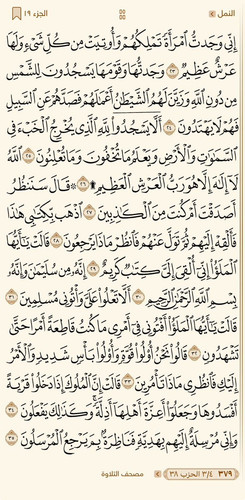 النمل الجزء ١٩
إِنِّي وَجَدتُّ ٱمْرَأَةً تَمْلِكُهُمْ وَأُوتِيَتْ مِن كُلِّ شَىْءٍ وَلَهَا
عَرْشٌ عَظِيمٌ ٢٣ وَجَدتُّهَا وَقَوْمَهَا يَسْجُدُونَ لِلشَّمْسِ
مِن دُونِ ٱللَّهِ وَزَيَّنَ لَهُمُ ٱلشَّيْطَٰنُ أَعْمَٰلَهُمْ فَصَدَّهُمْ عَنِ ٱلسَّبِيلِ
فَهُمْ لَا يَهْتَدُونَ ٢٤ أَلَّا يَسْجُدُوا۟ لِلَّهِ ٱلَّذِى يُخْرِجُ ٱلْخَبْءَ فِى
ٱلسَّمَٰوَٰتِ وَٱلْأَرْضِ وَيَعْلَمُ مَا تُخْفُونَ وَمَا تُعْلِنُونَ ٢٥ ٱللَّهُ
لَآ إِلَٰهَ إِلَّا هُوَ رَبُّ ٱلْعَرْشِ ٱلْعَظِيمِ ۩ ٢٦ ۞ قَالَ سَنَنظُرُ
أَصَدَقْتَ أَمْ كُنتَ مِنَ ٱلْكَٰذِبِينَ ٢٧ ٱذْهَب بِّكِتَٰبِى هَٰذَا
فَأَلْقِهْ إِلَيْهِمْ ثُمَّ تَوَلَّ عَنْهُمْ فَٱنظُرْ مَاذَا يَرْجِعُونَ ٢٨ قَالَتْ يَٰٓأَيُّهَا
ٱلْمَلَؤُا۟ إِنِّىٓ أُلْقِىَ إِلَىَّ كِتَٰبٌ كَرِيمٌ ٢٩ إِنَّهُۥ مِن سُلَيْمَٰنَ وَإِنَّهُۥ
بِسْمِ ٱللَّهِ ٱلرَّحْمَٰنِ ٱلرَّحِيمِ ٣٠ أَلَّا تَعْلُوا۟ عَلَىَّ وَأْتُونِى مُسْلِمِينَ ٣١
قَالَتْ يَٰٓأَيُّهَا ٱلْمَلَؤُا۟ أَفْتُونِى فِىٓ أَمْرِى مَا كُنتُ قَاطِعَةً أَمْرًا حَتَّىٰ
تَشْهَدُونِ ٣٢ قَالُوا۟ نَحْنُ أُو۟لُوا۟ قُوَّةٍ وَأُو۟لُوا۟ بَأْسٍ شَدِيدٍ وَٱلْأَمْرُ
إِلَيْكِ فَٱنظُرِى مَاذَا تَأْمُرِينَ ٣٣ قَالَتْ إِنَّ ٱلْمُلُوكَ إِذَا دَخَلُوا۟ قَرْيَةً
أَفْسَدُوهَا وَجَعَلُوٓا۟ أَعِزَّةَ أَهْلِهَآ أَذِلَّةً ۖ وَكَذَٰلِكَ يَفْعَلُونَ ٣٤
وَإِنِّى مُرْسِلَةٌ إِلَيْهِم بِهَدِيَّةٍ فَنَاظِرَةٌۢ بِمَ يَرْجِعُ ٱلْمُرْسَلُونَ ٣٥
٣٧٩ ٣/٤ الحزب ٣٨ مصحف التلاوة